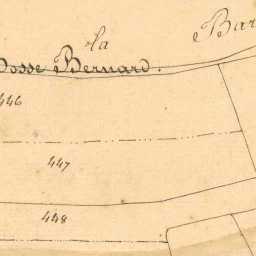 la
Bar
Fosse Bernard.
446
447
448